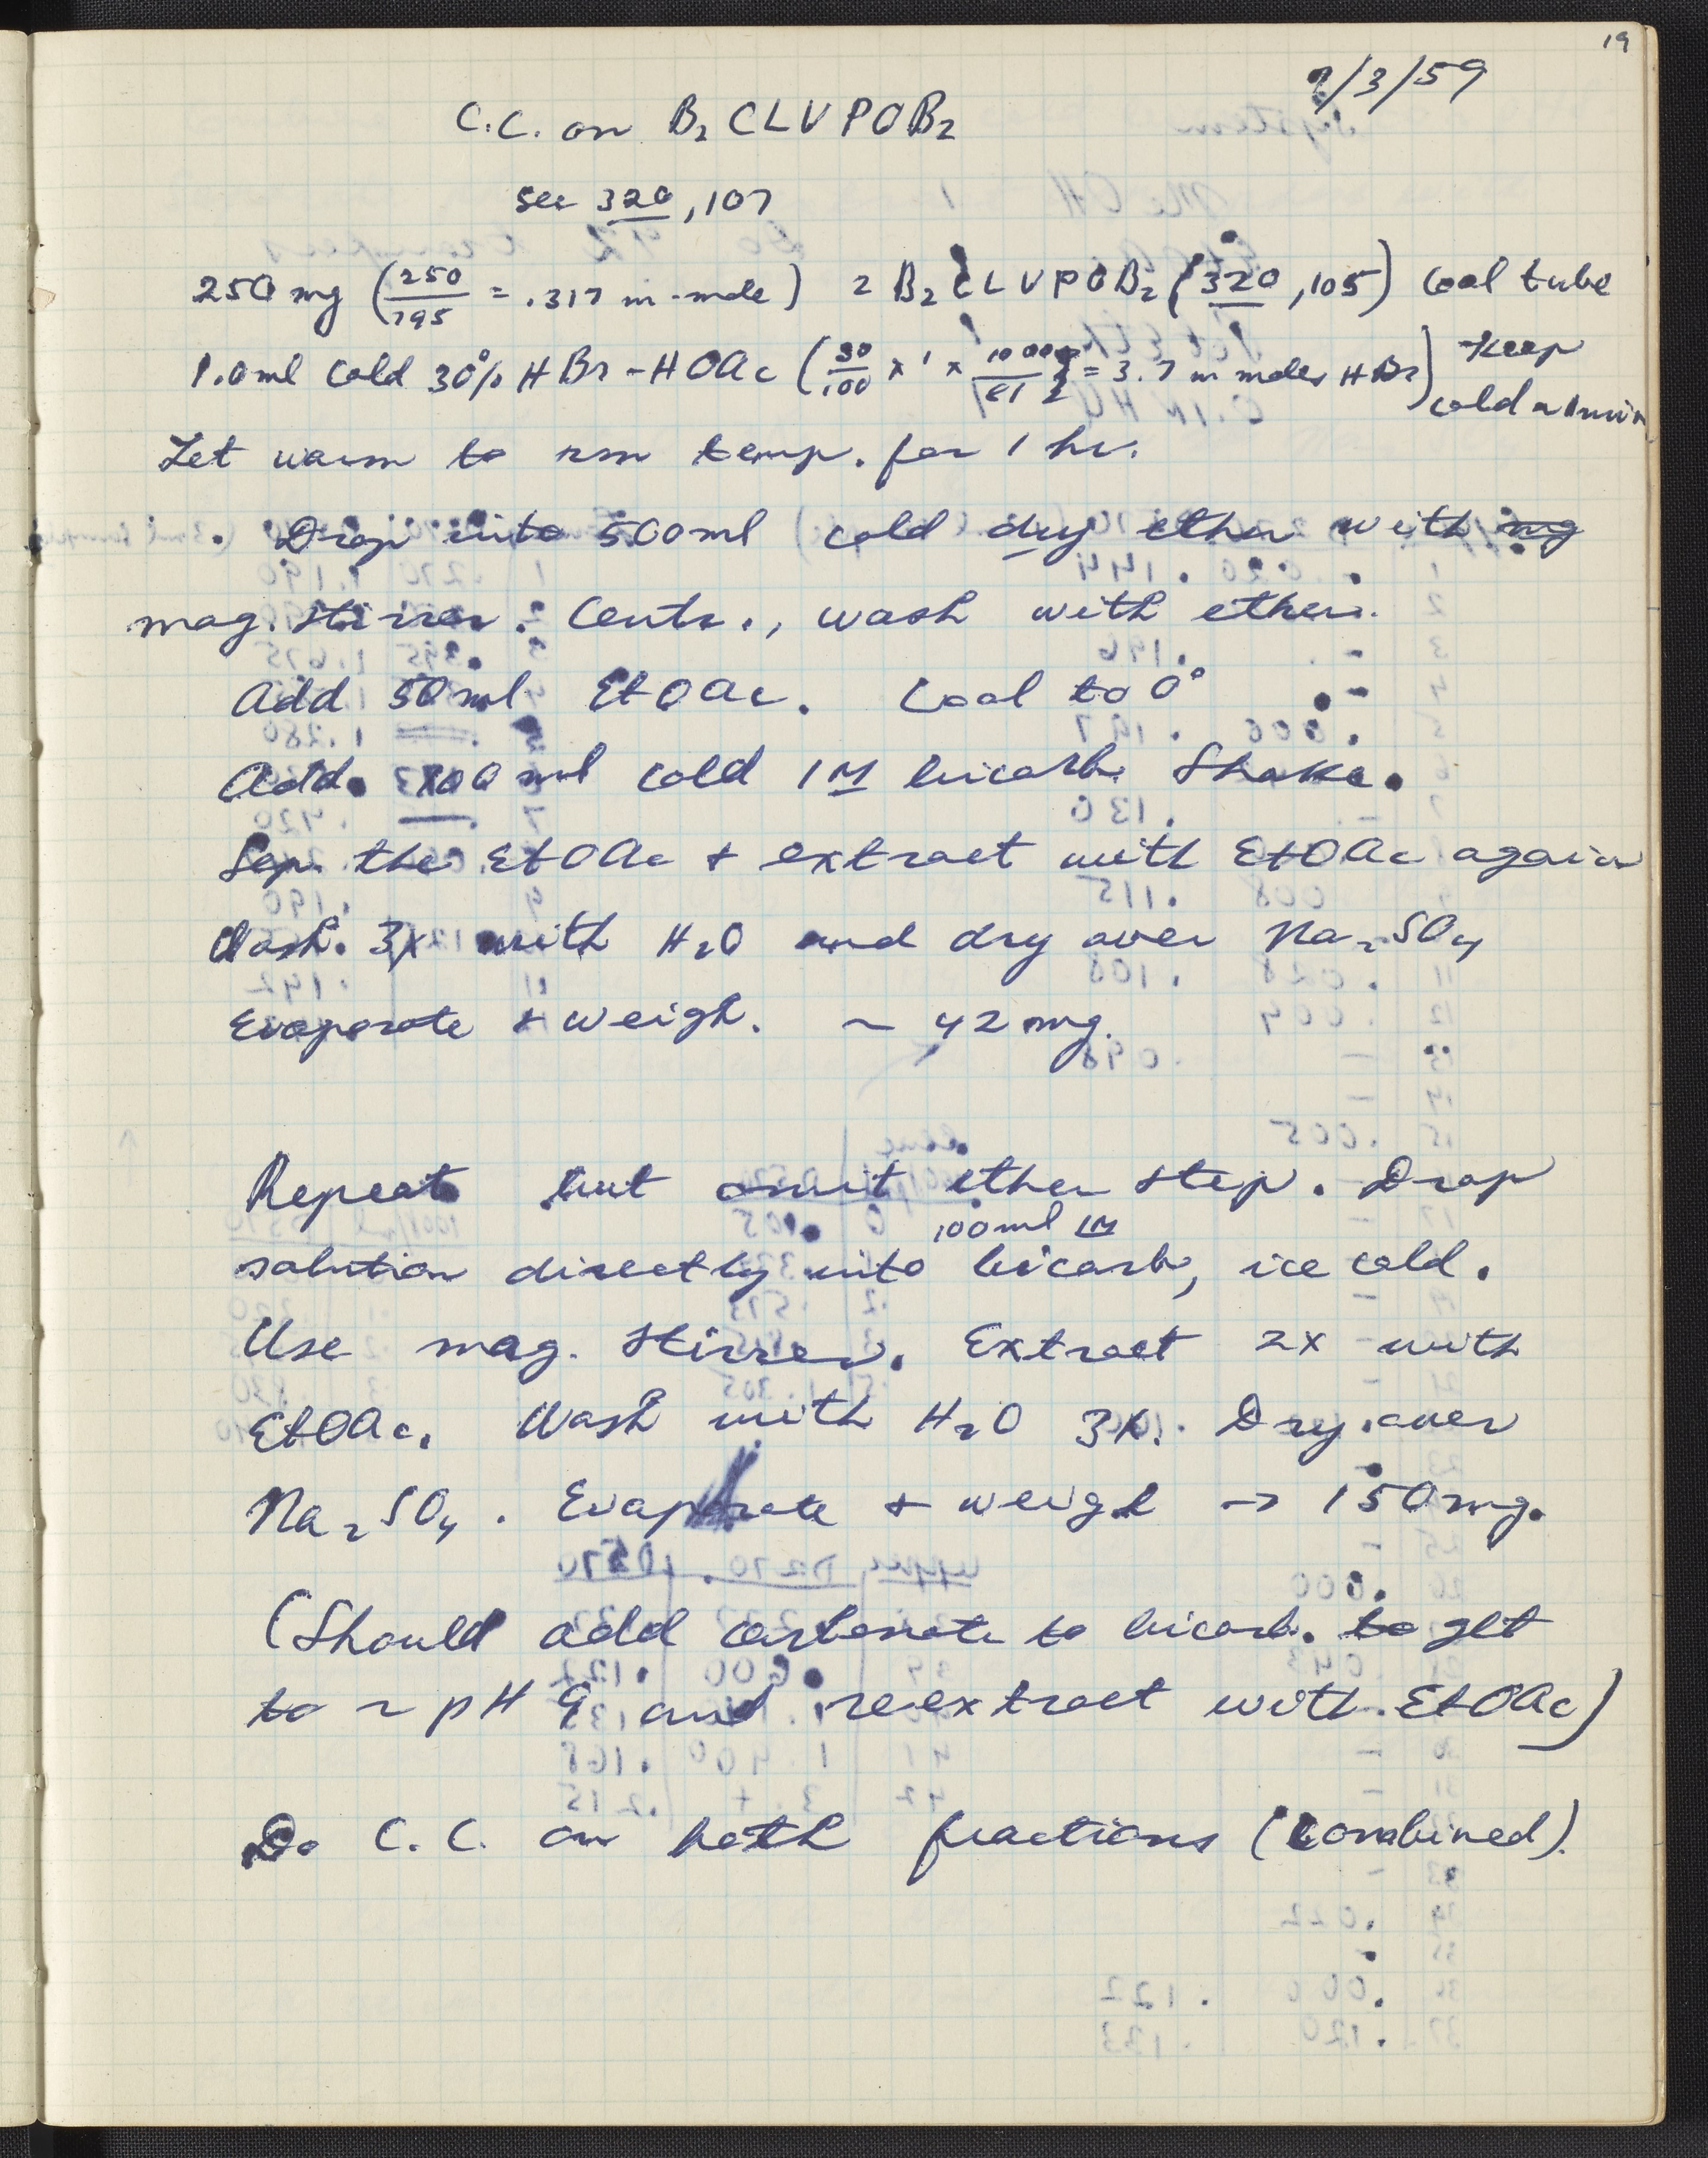 19
9/3/59
C.C. on B₂CLVPOB₂
see 320, 107
250 mg (250/795 = .317 m-mole) 2 B₂CLVPOB₂ (320, 105) Cool tube
1.0 ml Cold 30% HBr-HOAc (30/100 x 1 x 1000/81 = 3.7 m moles HBr) Keep
cold ~ 1 min
Let warm to rm temp. for 1 hr.
Drop into 500 ml cold dry ether with mg
mag. stirrer. Centr., wash with ether.
Add 50 ml EtOAc. Cool to 0°
Add 100 ml cold 1M bicarb. Shake.
Sep. the EtOAc + extract with EtOAc again
Wash 3x with H₂O and dry over Na₂SO₄
Evaporate + weigh. ~ 42 mg.
Repeat but omit ether step. Drop
100 ml 1M
solution directly into bicarb, ice cold.
Use mag. stirrer. Extract 2x with
EtOAc. Wash with H₂O 3x. Dry over
Na₂SO₄. Evaporate + weigh → 150 mg.
(Should add carbonate to bicarb. to get
to ~ pH 9 and reextract with EtOAc)
Do C.C. on both fractions (combined).